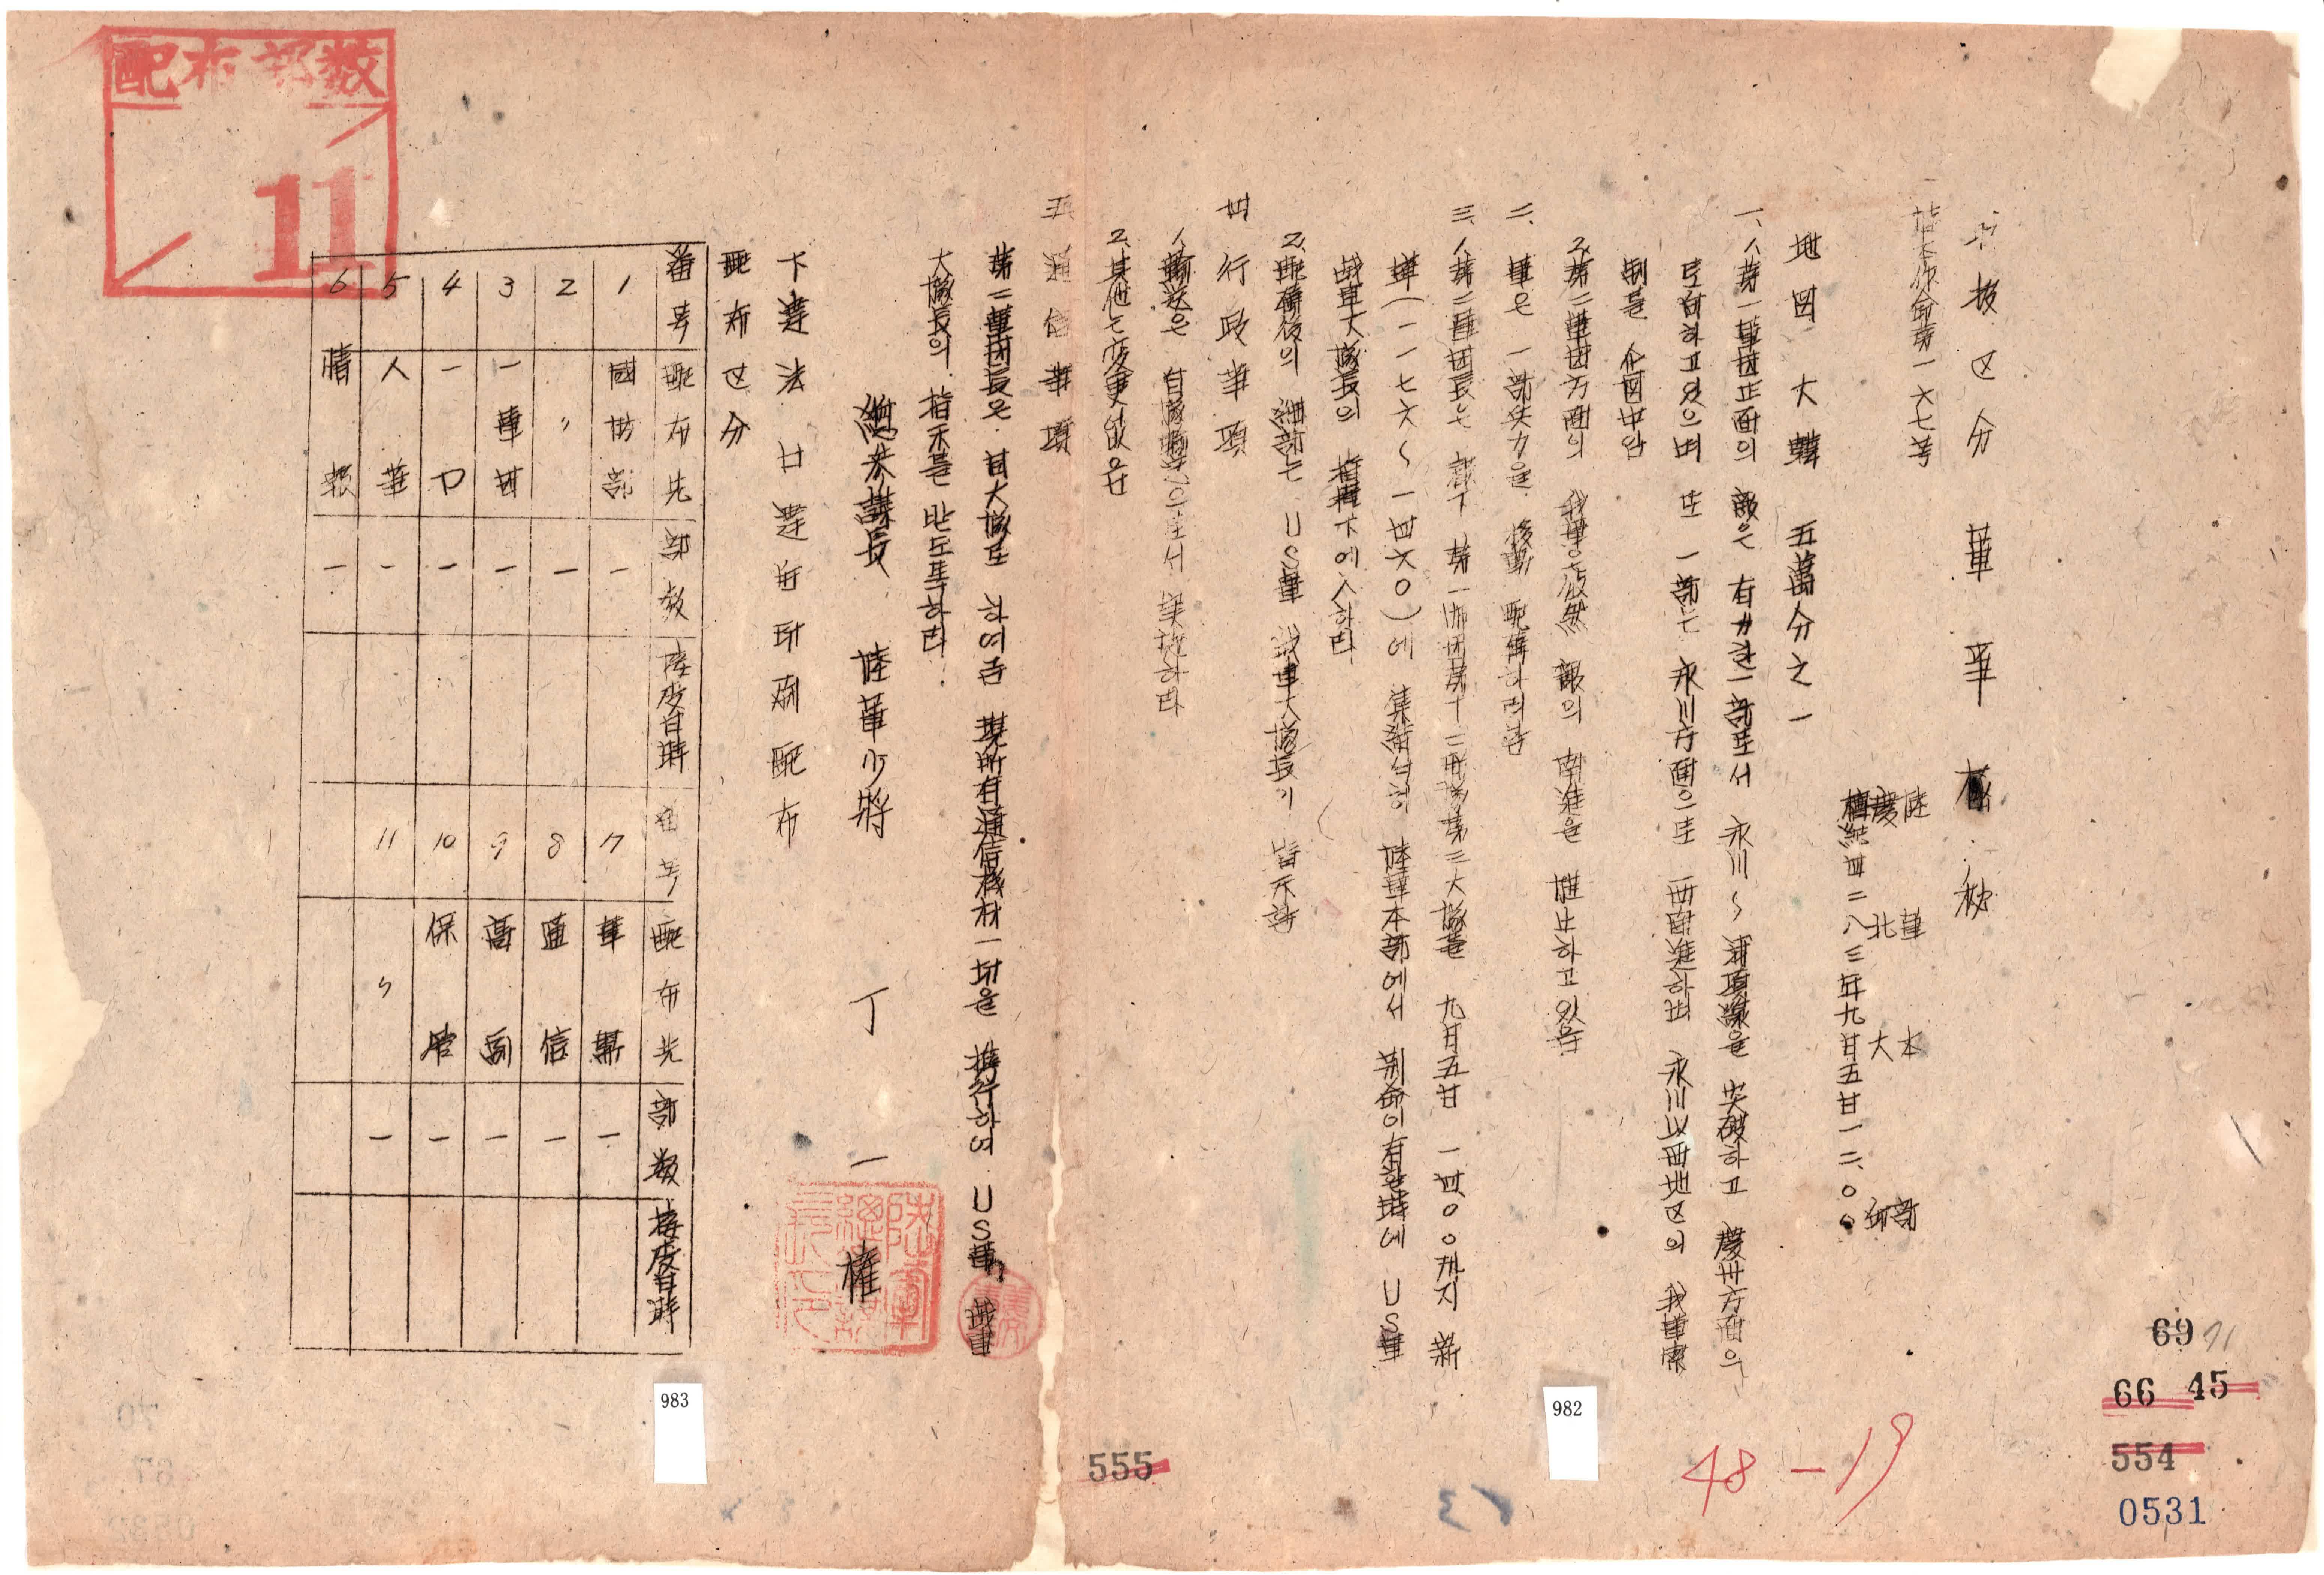 区分 軍事秘
作命第一六七号
陸軍本部
慶北大邱
檀紀四二八三年九月五日一二、〇〇
地図 大韓 五萬分之一
一、1、第一軍団正面의 敵은 有力한 一部로서 永川~浦項線을 突破하고 慶州方面으
로 하고있으며 또 一部는 永川方面으로 西南進하며 永川以西地区의 我軍
制를 企図中임
2、第二軍団方面의 我軍은 依然 敵의 南進을 阻止하고있음
二、軍은 一部兵力을 移動 配備하려함
三、1、第二軍団長은 隷下 第一師団第十二聯隊第三大隊를 九月五日 一四〇〇까지 新
(一一七六~一四六〇)에 集結식혀 陸軍本部에서 別命이有할時에 US軍
戦車大隊長의 指揮下에入하라
2、配備後의 細部는 US軍 戦車大隊長이 指示함
四 行政事項
1、輸送은 自隊 으로서 実施하라
2、其他는変更없음
五 通信事項
第二軍団長은 该大隊로 하여금 現所有通信機材一部을 携行하여 US軍 戦車
大隊長의 指示를 받도록하라
總参謀長 陸軍少將 丁一權
下達法 口達后印刷配布
配布区分
番号 配布先 部数 接受日時 番号 配布先 部数 接受日時
1 國防部 一 7 軍需 一
2 〃 一 8 通信 一
3 一軍団 一 9 高副 一
4 一 一 10 保管 一
5 人事 一 11 〃 一
6 情報 一
配布部数
11
983
982
555
69 71
66 45
554
0531
48-19